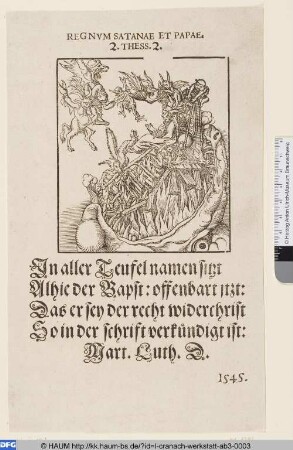 REGNVM SATANAE ET PAPAE.
2. THESS. 2.
In aller Teufel namen sitzt
Alhie der Bapst: offenbart itzt:
Das er sey der recht widerchrist
So in der schrifft verkündigt ist:
Mart. Luth. D.
1545.
© Herzog Anton Ulrich-Museum Braunschweig
DFG
© HAUM http://kk.haum-bs.de/?id=l-cranach-werkstatt-ab3-0003